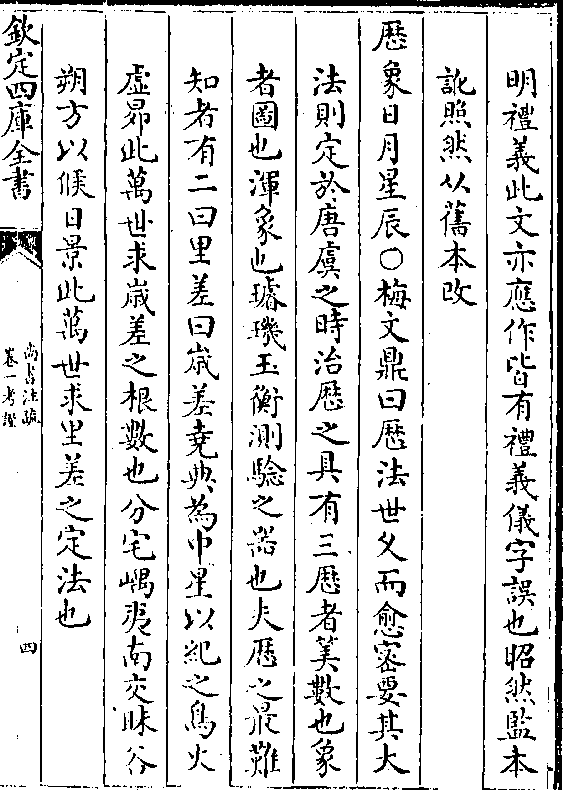 明禮義此文亦應作皆有禮義儀字誤也昭然監本
訛照然从舊本改
歴象日月星辰○梅文鼎曰歴法世久而愈宻要其大
法則定於唐虞之時治歴之具有三歴者筭數也象
者圖也渾象也璿璣玉衡測驗之器也夫歴之最難
知者有二曰里差曰嵗差堯典為中星以紀之鳥火
虚昴此萬世求嵗差之根數也分宅嵎夷南交昧谷
朔方以候日景此萬世求里差之定法也
欽定四庫全書
尚書注疏
卷一考證
四